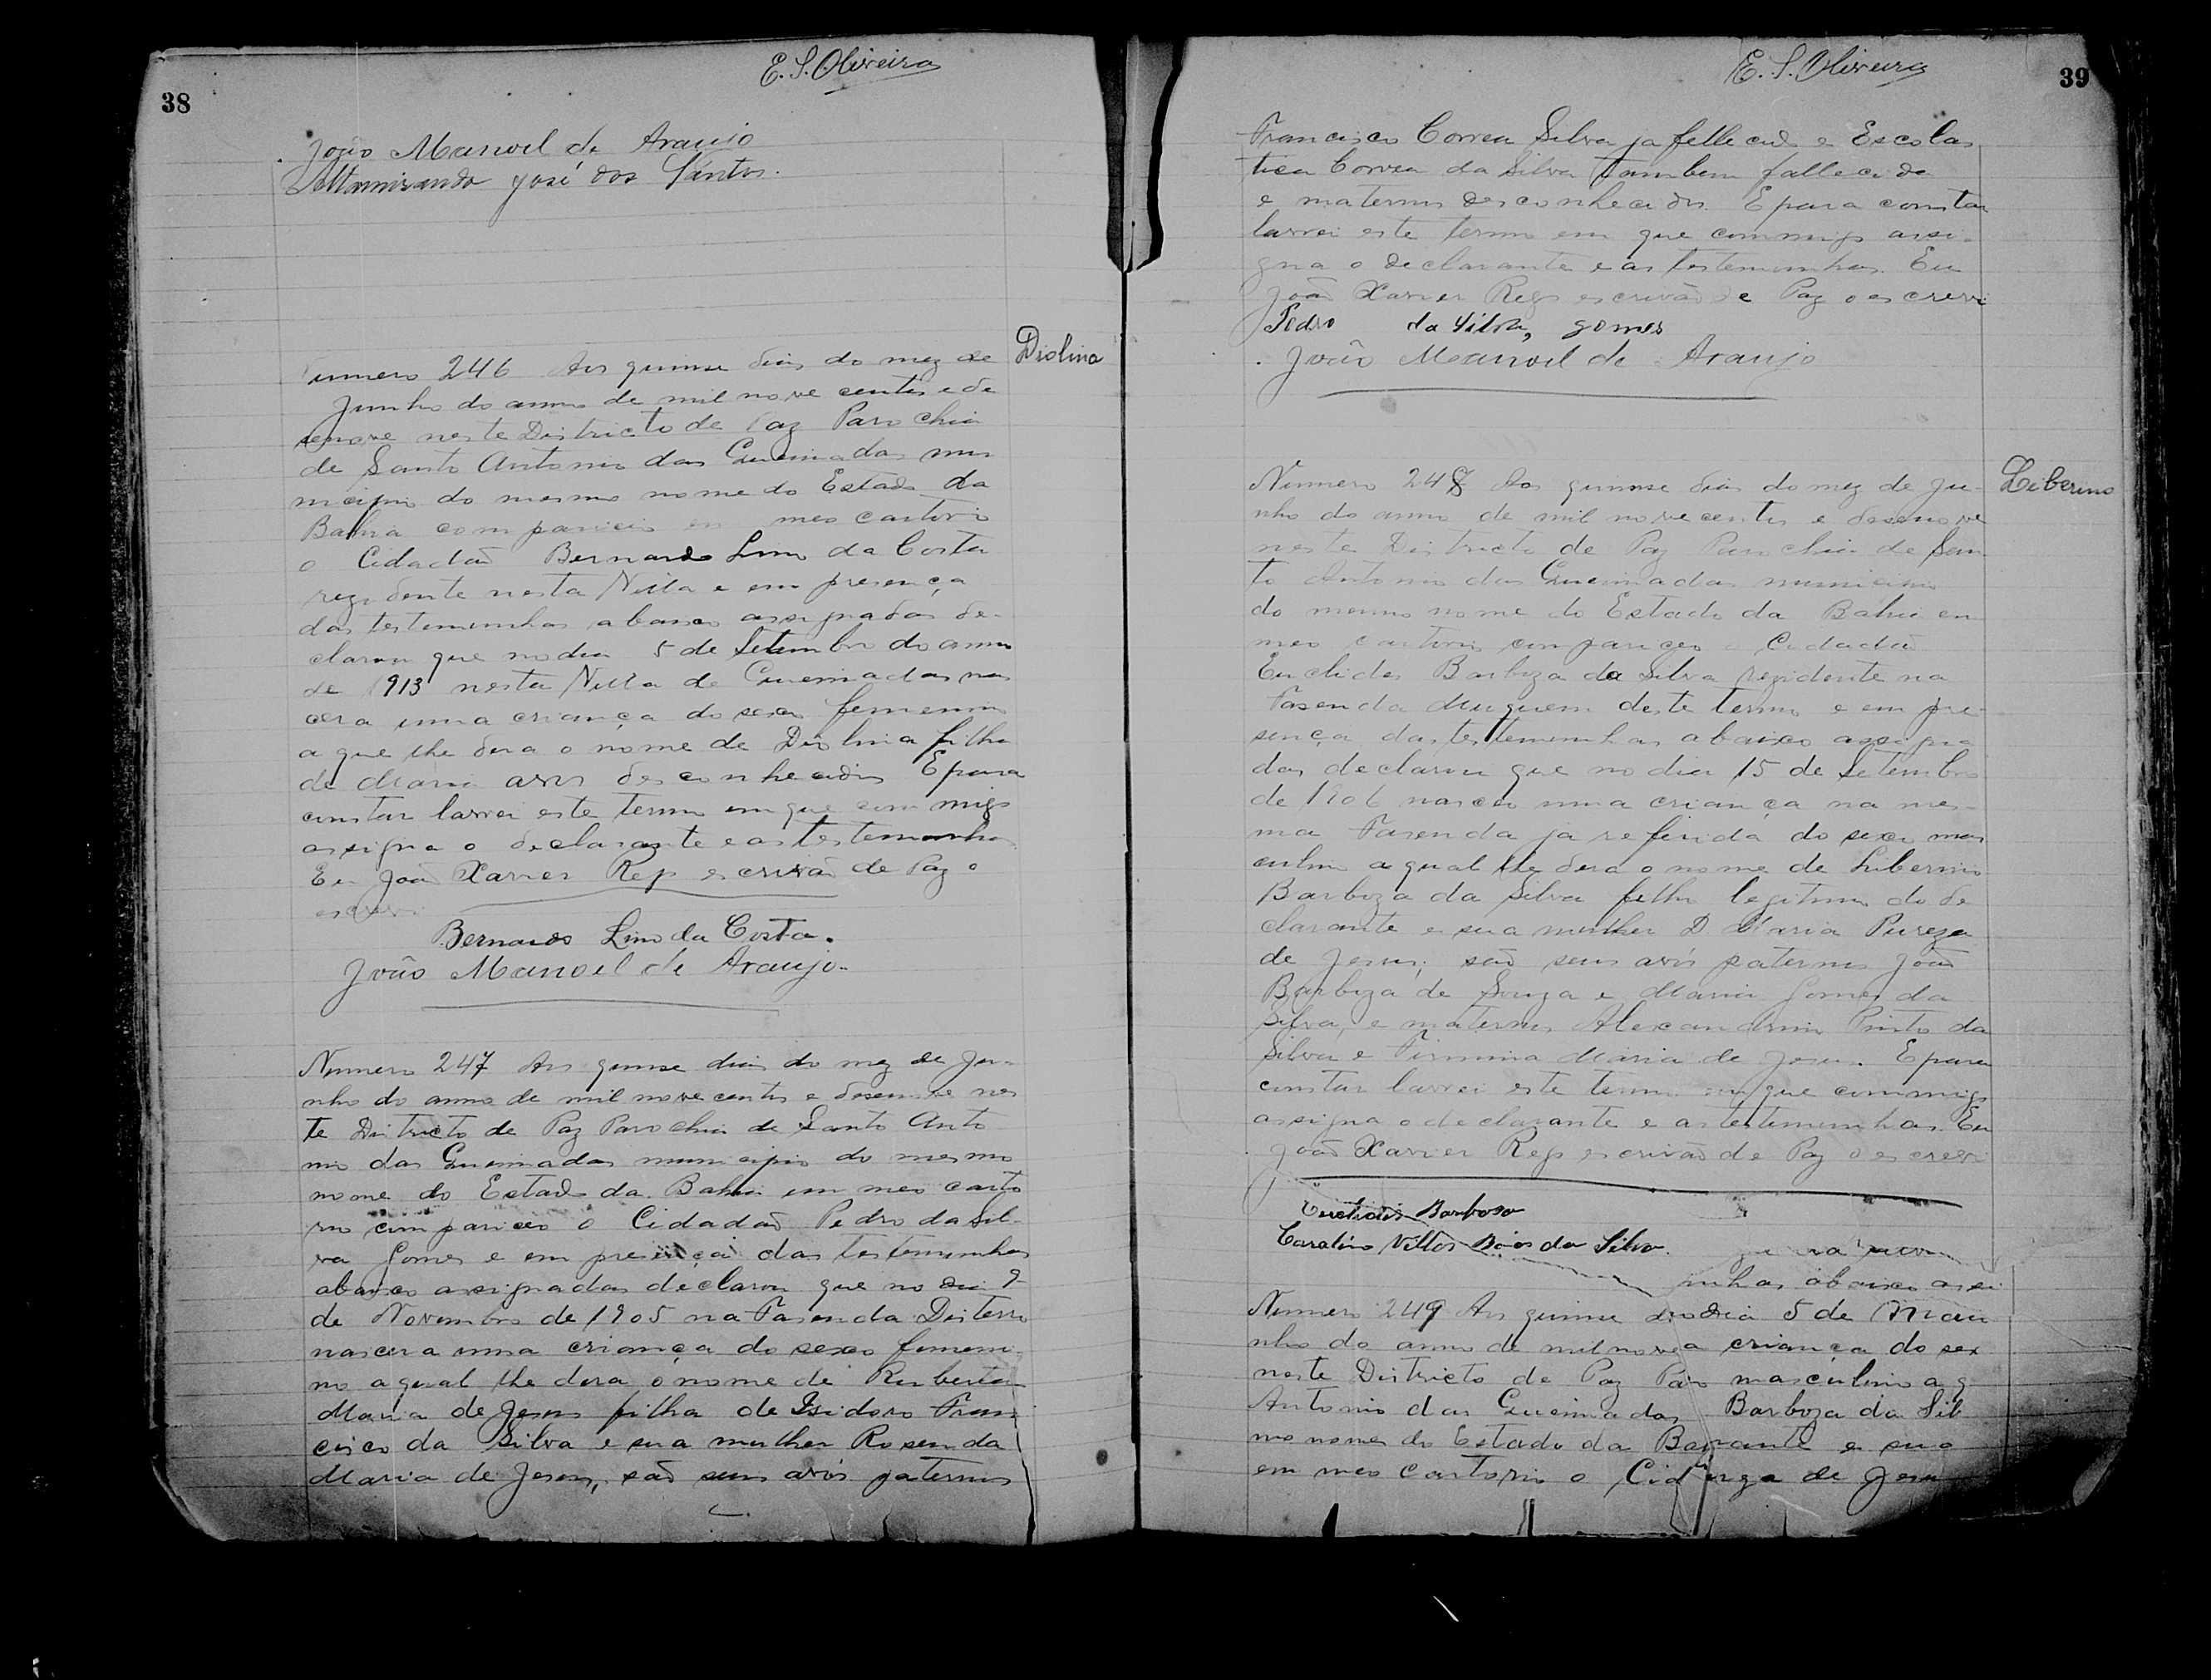 38
E. S. Oliveira
João Manoel de Araujo
Altamirando José dos Santos.
Diolina
umero 246 Aos quinse dias do mez de
Junho do anno de mil nove centos e de
senove neste Districto de Paz Parochia
de Santo Antonio das Queimadas mu
nicipio do mesmo nome do Estado da
Bahia compareceu em meo cartorio
o Cidadão Bernardo Lino da Costa
rezidente nesta Villa e em presença
das testemunhas abaixo assignadas de-
clarou que no dia 5 de Setembro do anno
de 1913 nesta Villa de Queimadas nas
cera uma criança do sexo femenino
a que lhe dera o nome de Diolina filha
de Maria avos desconhecidos E para
constar lavrei este termo em que commigo
assigna o declarante e as testemunhas
Eu João Xavier Rego escrivão de Paz o
escrevi
Bernardo Lino da Costa.
João Manoel de Araujo.
Numero 247 Aos quinse dias do mez de Ju-
nho do anno de mil nove centos e desenove nes
te Districto de Paz Parochia de Santo Anto
nio das Queimadas municipio do mesmo
nome do Estado da Bahia em meo carto
rio compareceo o Cidadão Pedro da Sil-
va Gomes e em presença das testemunhas
abaixo assignadas declarou que no dia 9
de Novembro de 1905 na Fasenda Desterro
nascera uma criança do sexo femeni-
no a qual lhe dera o nome de Ruberta
Maria de Jesus filha de Isidoro Fran
cisco da Silva e sua mulher Rosenda
Maria de Jesus, são seus avós paternos
39
E. S. Oliveira
Francisco Correa Silva ja fellecido e Escolas
tica Correa da Silva tambem fallecida
e maternos desconhecidos. E para constar
lavrei este termo em que commigo assi-
gna o declarante e as testemunhas. Eu
João Xavier Rego escrivão de Paz o escrevi
Pedro da Silva, gomes
João Manoel de Araujo
Liberino
Numero 248 Aos quinse dias do mez de Ju-
nho do anno de mil nove centos e desenove
neste Districto de Paz Parochia de San
to Antonio das Queimadas municipio
do mesmo nome do Estado da Bahia em
meo cartorio compareceo o Cidadão
Euclides Barboza da Silva rezidente na
Fasenda Muquem deste termo e em pre-
sença das testemunhas abaixo assigna
das declarou que no dia 15 de Setembro
de 1906 nasceu uma criança na mes-
ma Fasenda ja referida do sexo mas
culino a qual lhe dera o nome de Liberino
Barboza da Silva filho legitimo do de
clarante e sua mulher D. Maria Pureza
de Jesus; são seus avós paternos João
Barboza de Souza e Maria Gomes da
Silva, e maternos Alexandrino Pinto da
Silva e Firmina Maria de Jesus. E para
constar lavrei este termo em que commigo
assigna o declarante e as testemunhas. Eu
João Xavier Rego escrivão de Paz o escrevi
Euclides Barbosa
Carolino Villas Boas da Silva.
nhas abaixo assi
Numero 249 Aos quinse no dia 5 de Maio
nho do anno de mil nove a criança do sex
neste Districto de Paz Par masculino a q
Antonio das Queimadas Barboza da Sil
mo nome do Estado da Ba rante e sua
em meo cartorio o Cid ureza de Jesu